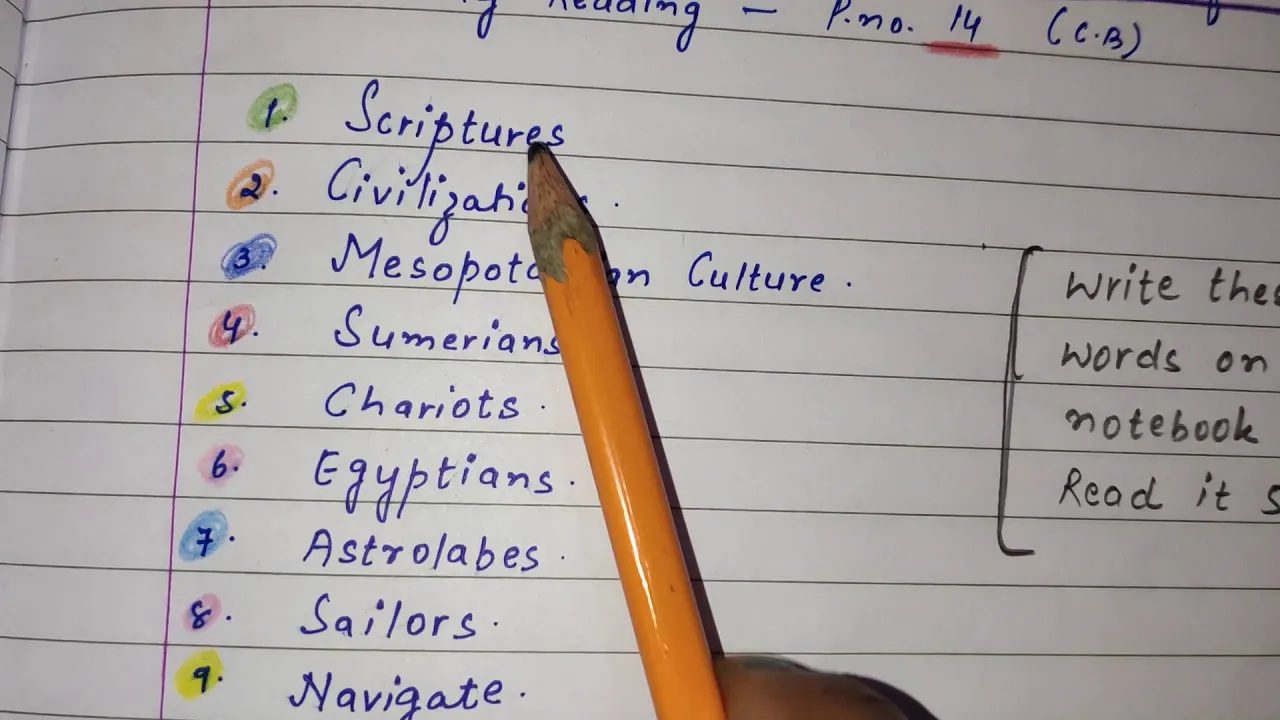 Reading — P.no. 14 (C.B)
1. Scriptures
2. 
3. Culture.
4. Sumerians
5. Chariots.
6. Egyptians.
7. Astrolabes.
8. Sailors.
9. Navigate.
Write
words on
notebook
Read it